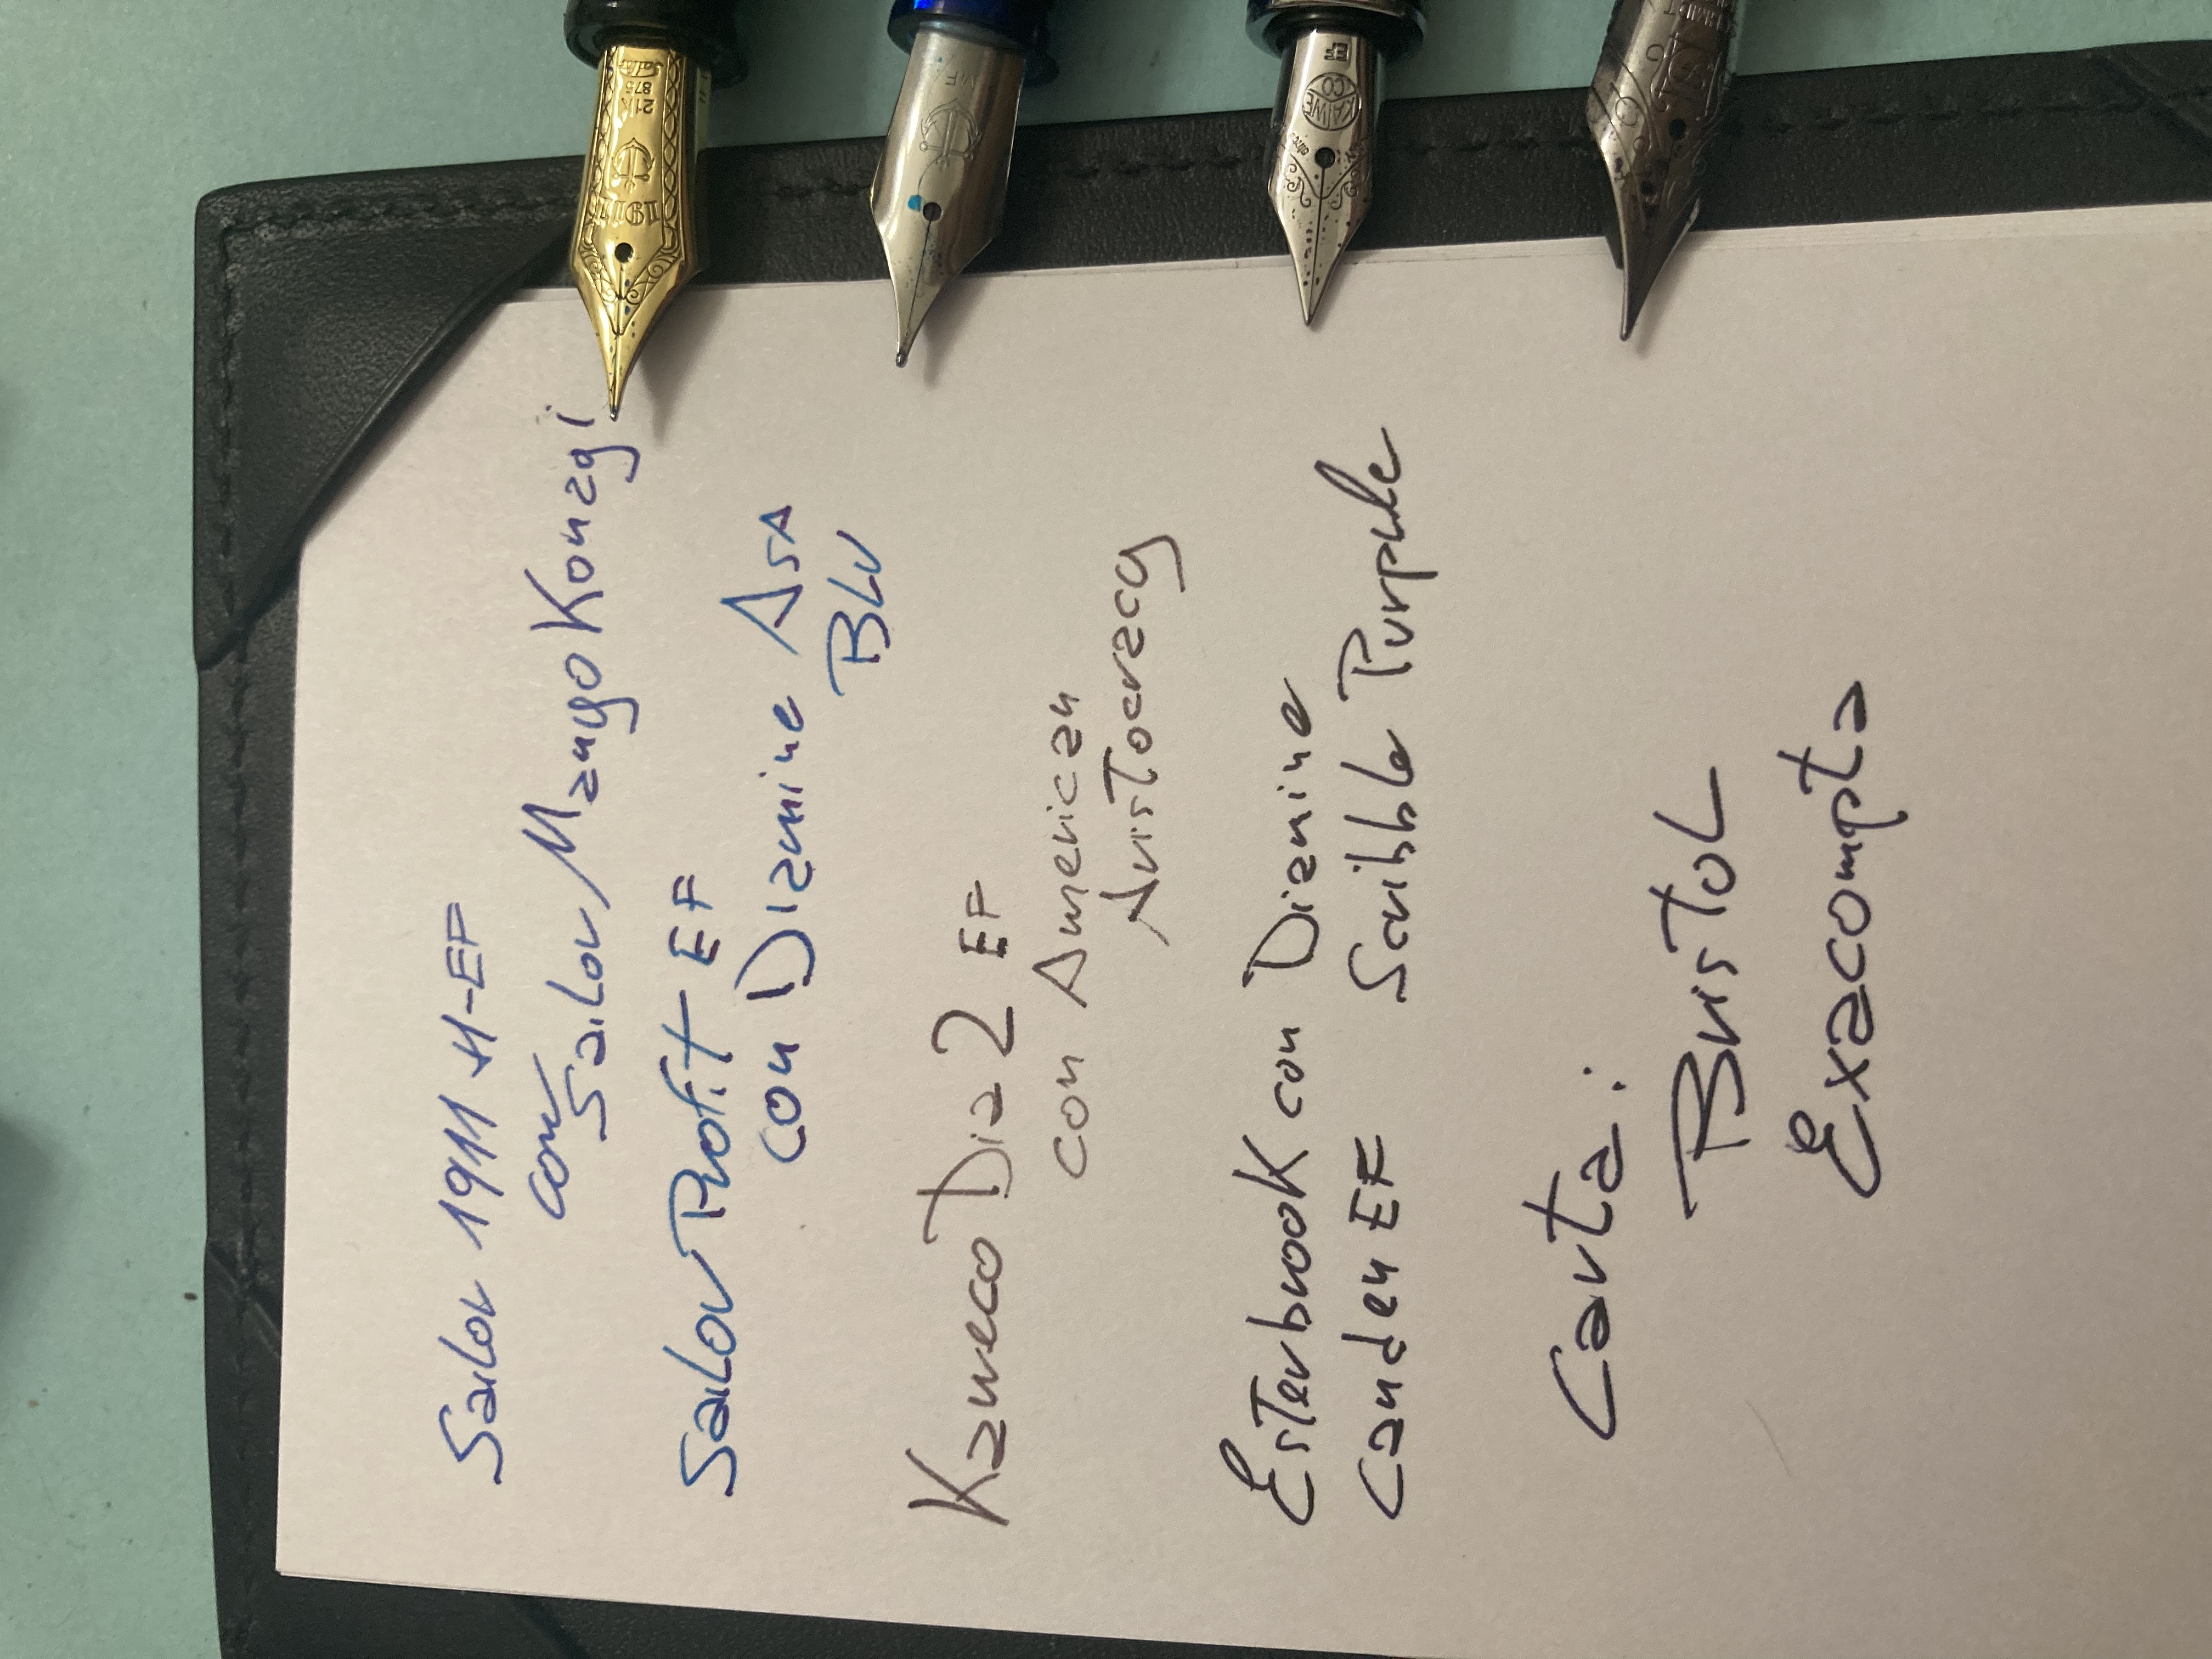 Sailor 1911 H-EF
con
Sailor Manyo Konagi
Sailor Profit EF
con Diamine Asa
BLU
Kaweco Dia 2 EF
con American
Aristocracy
Esterbrook con Diamine
Camden EF Scribble Purple
Carta:
Bristol
Exacompta
1911
21K
875
Sailor
MF
KAWE
CO
EF